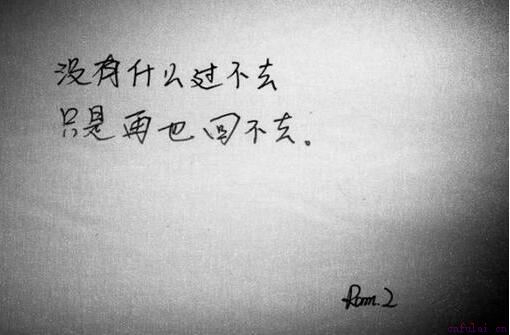 没有什么过不去
只是再也回不去。
Rom.2
cnfulai.cn